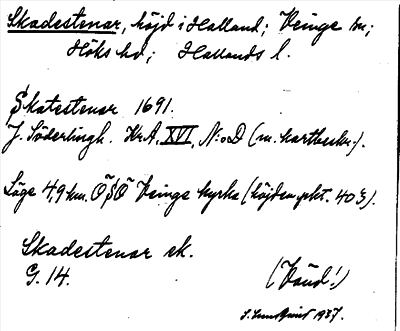 Skadestenar, höjd i Halland; Veinge sn;
Höks hd; Hallands l.
Skatestenar 1691.
J. Söderlingh. Kr.A. XVI, N:o D (m. kartbeskr.).
Läge 4,9 km. ÖSÖ Veinge kyrka (höjden pkt. 40 ).
Skadestenar ek.
G. 14.
(Vänd!)
1937.